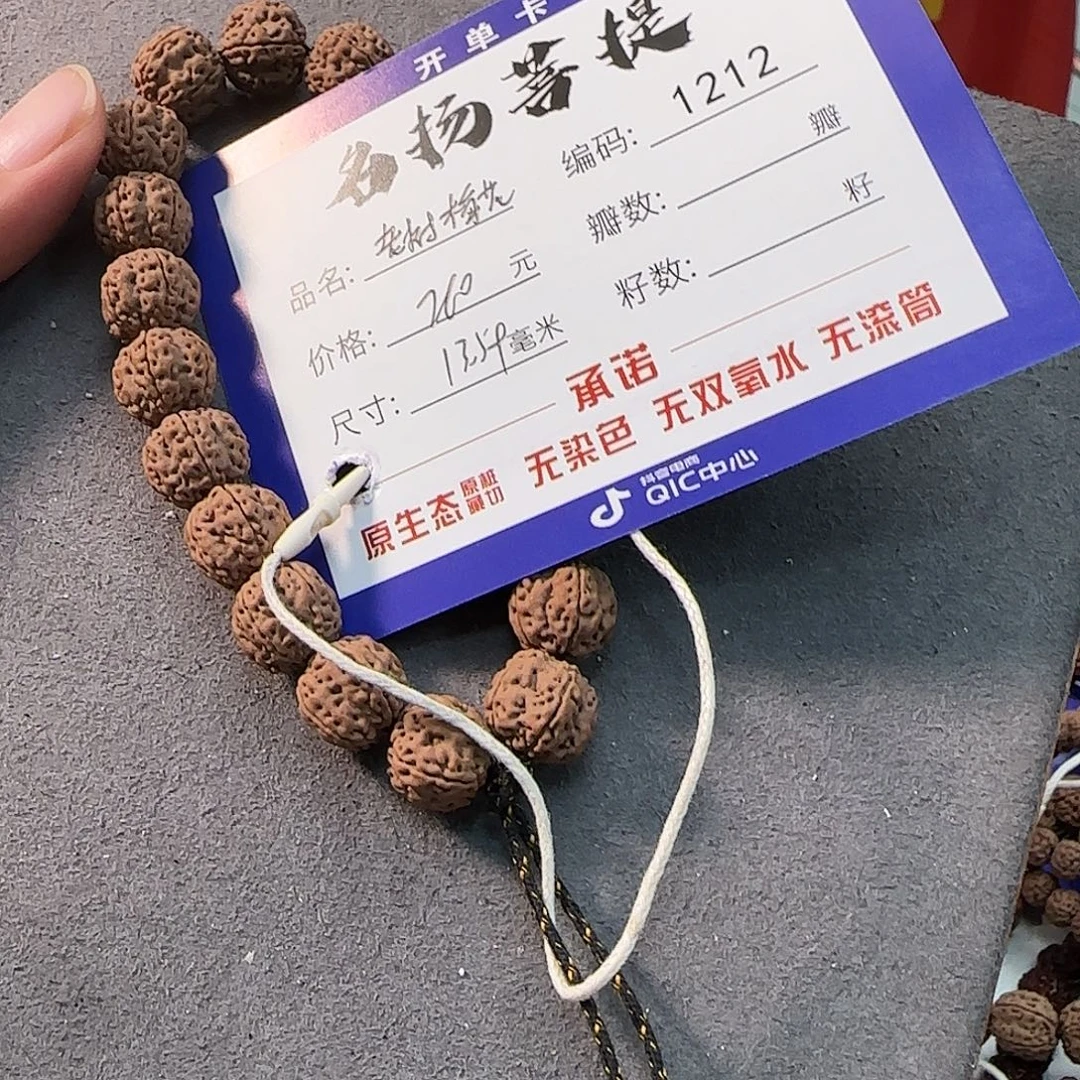 开单卡
名扬菩提
编码: 1212
品名:
瓣数: 瓣
价格: 260 元
籽数: 籽
尺寸: 毫米
承诺
原生态 原桩藏切 无染色 无双氧水 无滚筒
抖音电商
QIC中心